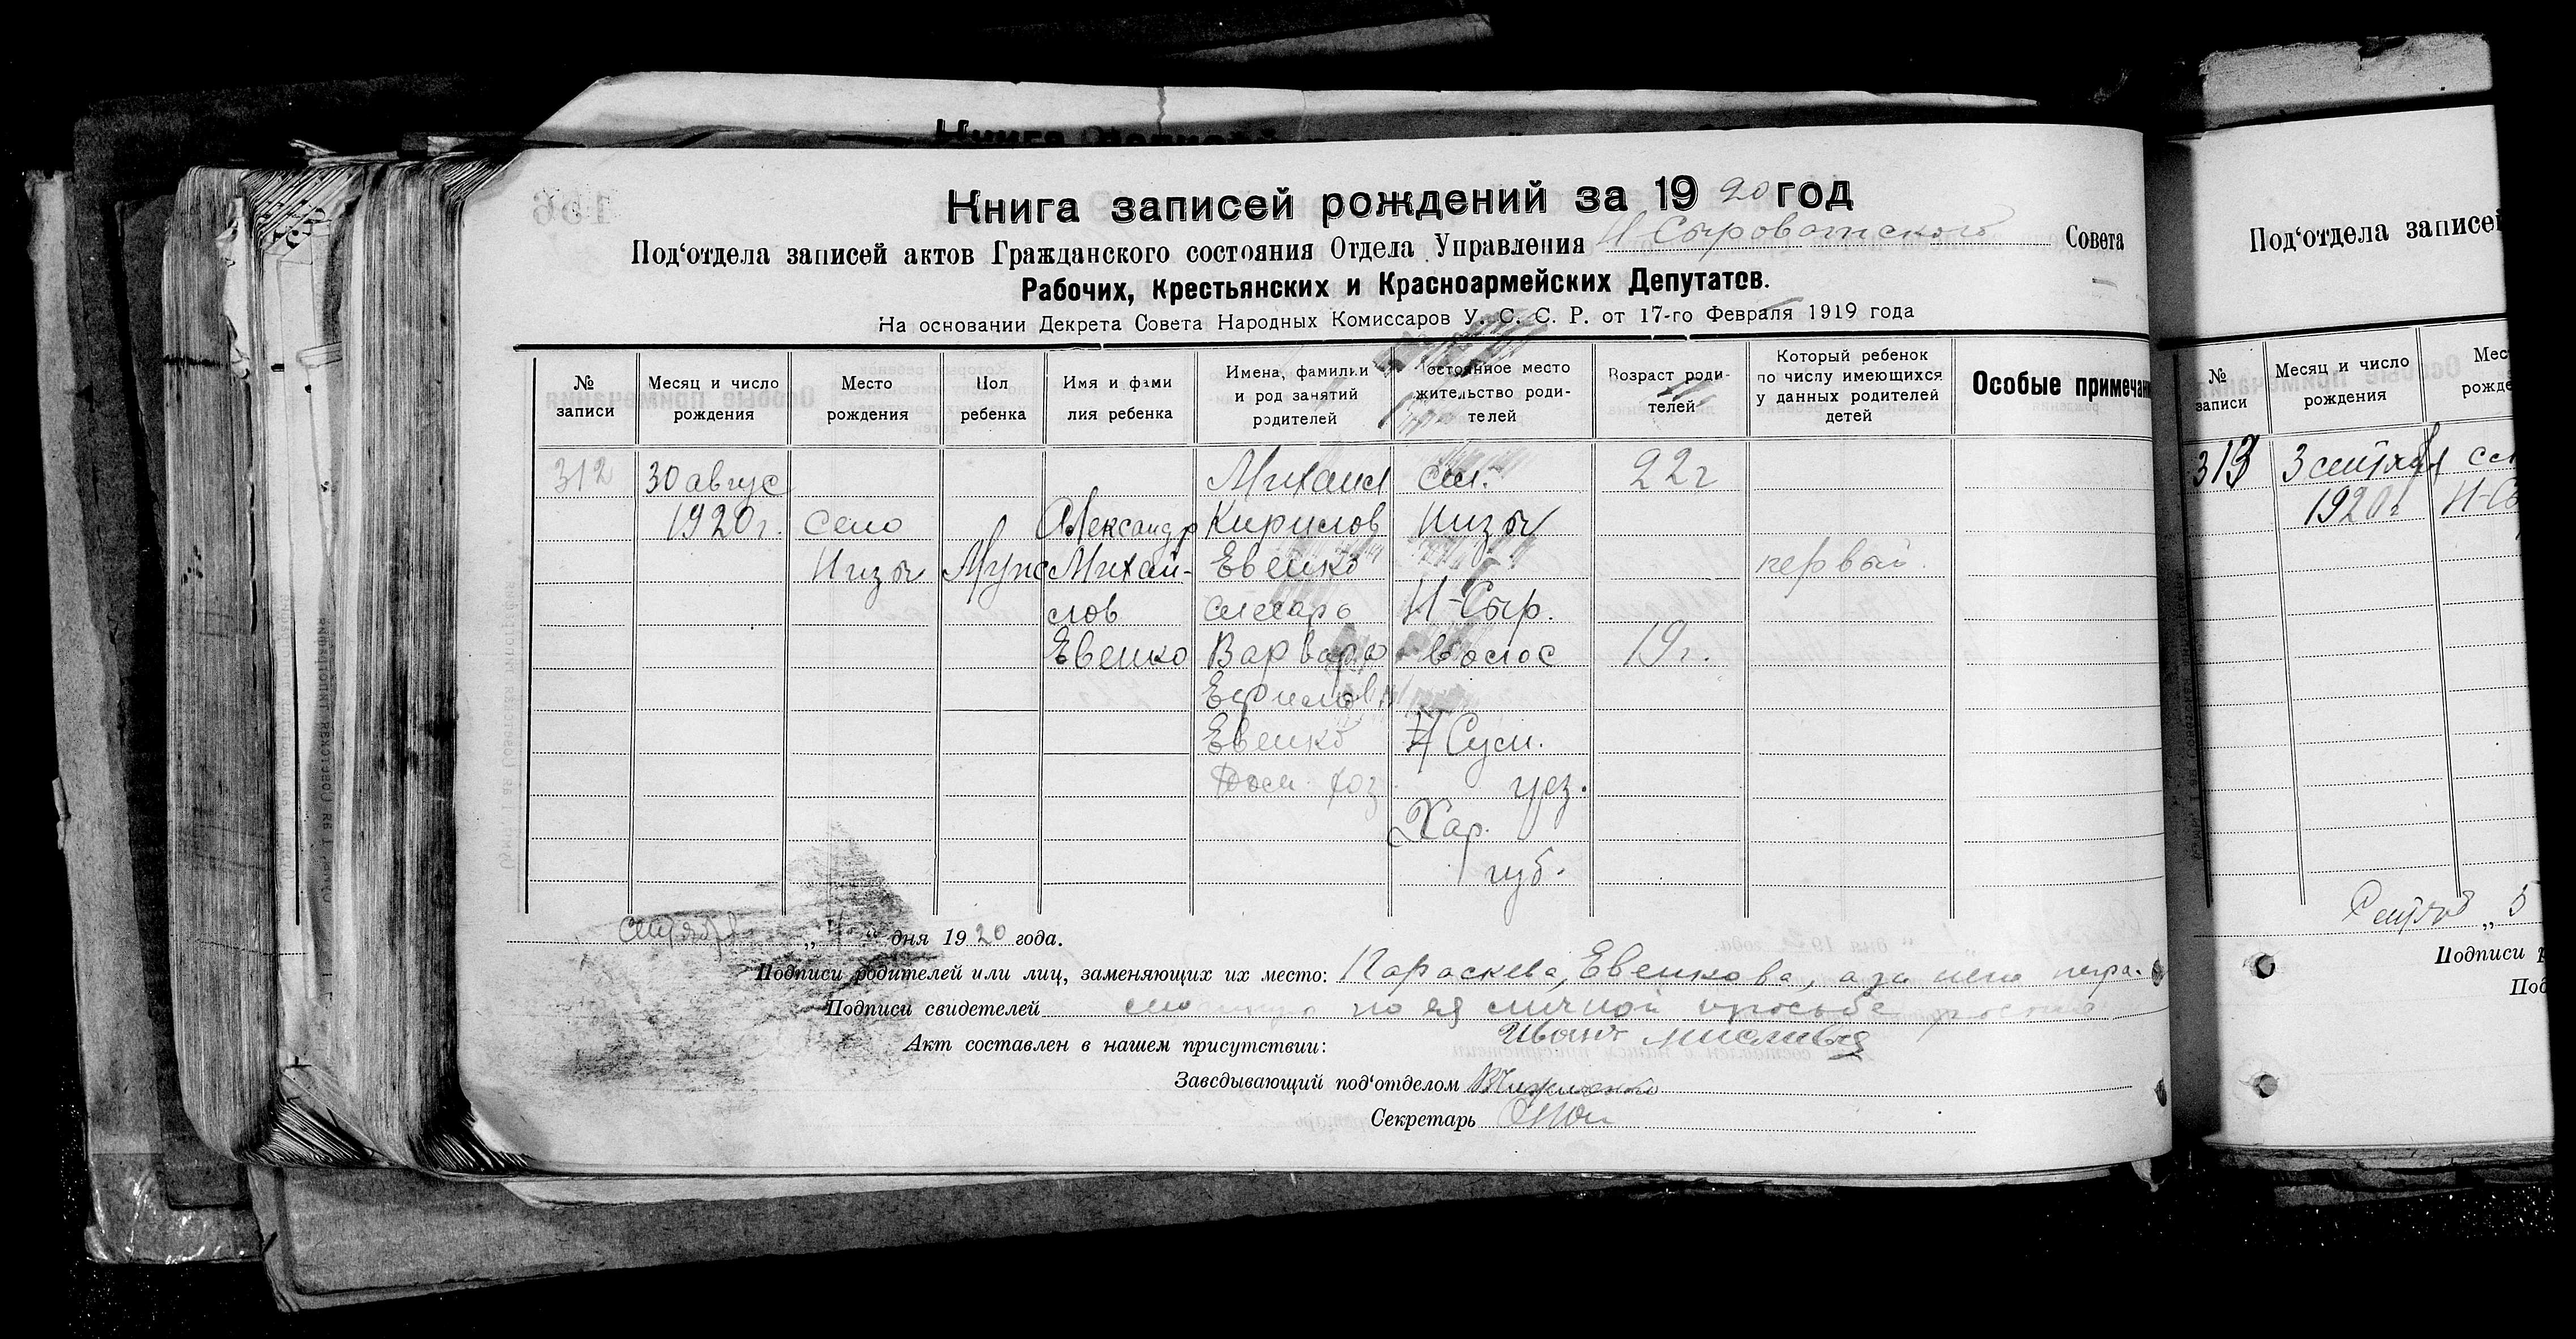 Книга записей рождений за 1920 год
Под‘отдела записей актов Гражданского состояния Отдела Управления Н-Сыроватского Совета
Рабочих, Крестьянских и Красноармейских Депутатов.
На основании Декрета Совета Народных Комиссаров У. С. С. Р. от 17-го Февраля 1919 года
№ записи
Месяц и число рождения
Место рождения
Пол ребенка
Имя и фами
лия ребенка
Имена, фамилии
и род занятий
родителей
Постоянное место
жительство роди-
телей
Возраст роди-
телей
Который ребенок
по числу имеющихся
у данных родителей
детей
Особые примечан
312
30 авгус
1920 г.
село
Низы
Муж
Александр
Михай-
лов
Евенко
Михаил
Кирилов
Евенко
слесарь
Варвара
Евенко
Дом. хоз.
сел.
Низы
Н-Сыр.
волос
Сум.
уез.
Хар.
губ.
22 г
19 г.
первый
сентября дня 1920 года.
Подписи родителей или лиц, заменяющих их место: Параскева Евенкова, а за негра-
Подписи свидетелей по ея личной просьбе
Иван
Акт составлен в нашем присутствии:
Заведывающий под‘отделом
Секретарь
Под‘отдела записей
№
записи
Месяц и число
рождения
Мес
рожде
313
3 сентября
1920 г
сел
Н-Сы
5
Подписи р
Под